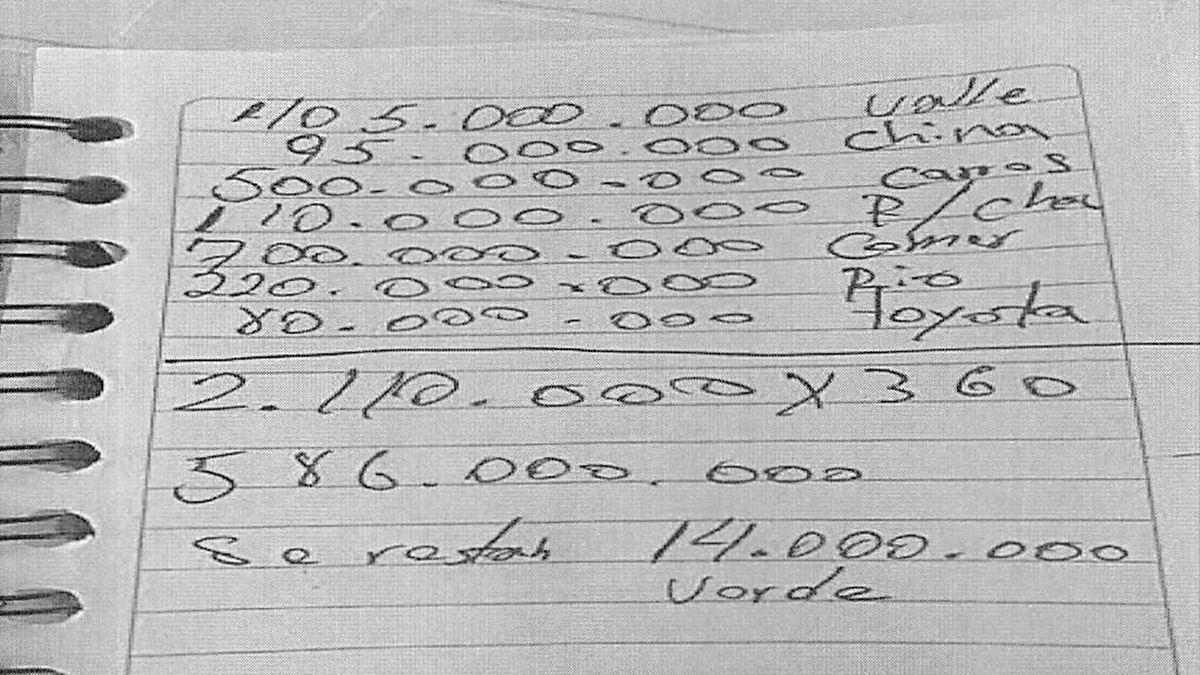 105.000.000 Valle
95.000.000 China
500.000.000 Carros
110.000.000 P/cha
700.000.000 Comer
220.000.000 Pio
80.000.000 Toyota
2.110.000 X 360
586.000.000
Se restan 14.000.000
Vorde